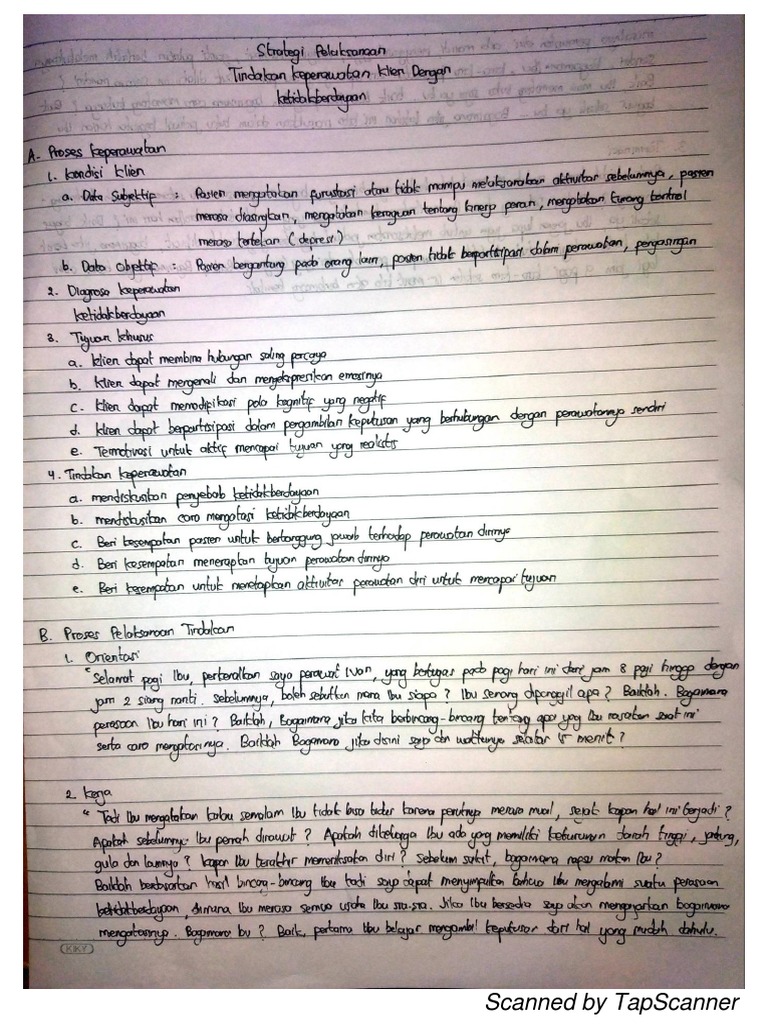 Strategi Pelaksanaan
Tindakan Keperawatan Klien Dengan
Ketidakberdayaan
A. Proses Keperawatan
1. Kondisi Klien
a. Data Subjektif : Pasien mengatakan furustasi atau tidak mampu melaksanakan aktivitas sebelumnya, pasien
merasa diasingkan, mengatakan keraguan tentang kinerja peran, mengatakan kurang kontrol
merasa tertekan (depresi)
b. Data Objektif : Pasien bergantung pada orang lain, pasien tidak berpartisipasi dalam perawatan, pengasingan
2. Diagnosa Keperawatan
Ketidakberdayaan
3. Tujuan Khusus
a. Klien dapat membina hubungan saling percaya
b. Klien dapat mengenali dan mengekspresikan emosinya
c. Klien dapat memodifikasi pola kognitif yang negatif
d. Klien dapat berpartisipasi dalam pengambilan keputusan yang berhubungan dengan perawatannya sendiri
e. Termotivasi untuk aktif mencapai tujuan yang realistis
4. Tindakan Keperawatan
a. mendiskusikan penyebab ketidakberdayaan
b. mendiskusikan cara mengatasi ketidakberdayaan
c. Beri kesempatan pasien untuk bertanggung jawab terhadap perawatan dirinya
d. Beri kesempatan menerapkan tujuan perawatan dirinya
e. Beri kesempatan untuk menetapkan aktivitas perawatan diri untuk mencapai tujuan
B. Proses Pelaksanaan Tindakan
1. Orientasi
"Selamat pagi Ibu, perkenalkan saya perawat Ivan, yang bertugas pada pagi hari ini dari jam 8 pagi hingga dengan
jam 2 siang nanti. Sebelumnya, boleh sebutkan nama Ibu siapa? Ibu senang dipanggil apa? Baiklah. Bagaimana
perasaan Ibu hari ini? Baiklah, Bagaimana jika kita berbincang-bincang tentang apa yang Ibu rasakan saat ini
serta cara mengatasinya. Baiklah Bagaimana jika disini saja dan waktunya sekitar 15 menit?
2. Kerja
" Tadi Ibu mengatakan kalau semalam Ibu tidak bisa tidur karena perutnya merasa mual, sejak kapan hal ini terjadi?
Apakah sebelumnya Ibu pernah dirawat? Apakah dikeluarga Ibu ada yang memiliki keturunan darah tinggi, jantung,
gula dan lainnya? Kapan Ibu terakhir memeriksakan diri? Sebelum sakit, bagaimana napsu makan Ibu?
Baiklah berdasarkan hasil bincang-bincang Ibu tadi saya dapat menyimpulkan bahwa Ibu mengalami suatu perasaan
ketidakberdayaan, dimana Ibu merasa semua usaha Ibu sia-sia. Jika Ibu bersedia saya akan mengajarkan bagaimana
mengatasinya. Bagaimana bu? Baik, pertama Ibu belajar mengambil keputusan dari hal yang mudah dahulu.
KKY
Scanned by TapScanner